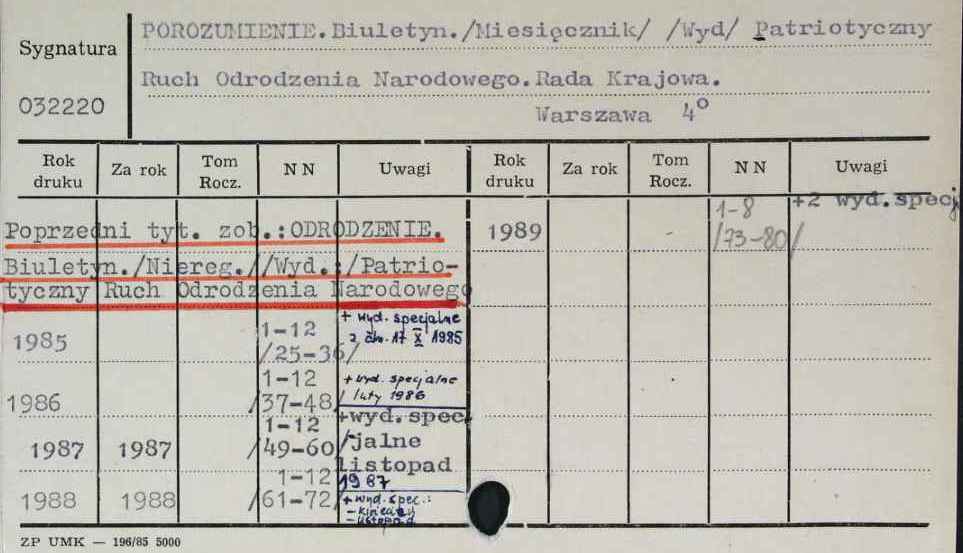 Sygnatura
032220
POROZUMIENIE.Biuletyn./Miesięcznik/ /Wyd/ Patriotyczny
Ruch Odrodzenia Narodowego.Rada Krajowa.
Warszawa 4°
Rok druku Za rok Tom Rocz. N N Uwagi Rok druku Za rok Tom Rocz. N N Uwagi
Poprzedni tyt. zob.:ODRODZENIE.
Biuletyn./Niereg.//Wyd.:/Patrio-
tyczny Ruch Odrodzenia Narodowego
1985 1-12 /25-36/ + wyd. specjalne
17 X 1985
1986 1-12 /37-48/ + wyd. specjalne
luty 1986
1987 1987 1-12 /49-60/ +wyd.spec
-jalne
listopad
1987
1988 1988 1-12 /61-72/ + wyd. spec.:
- listopad
1989 1-8 /73-80/ +2 wyd.specj
ZP UMK — 196/85 5000